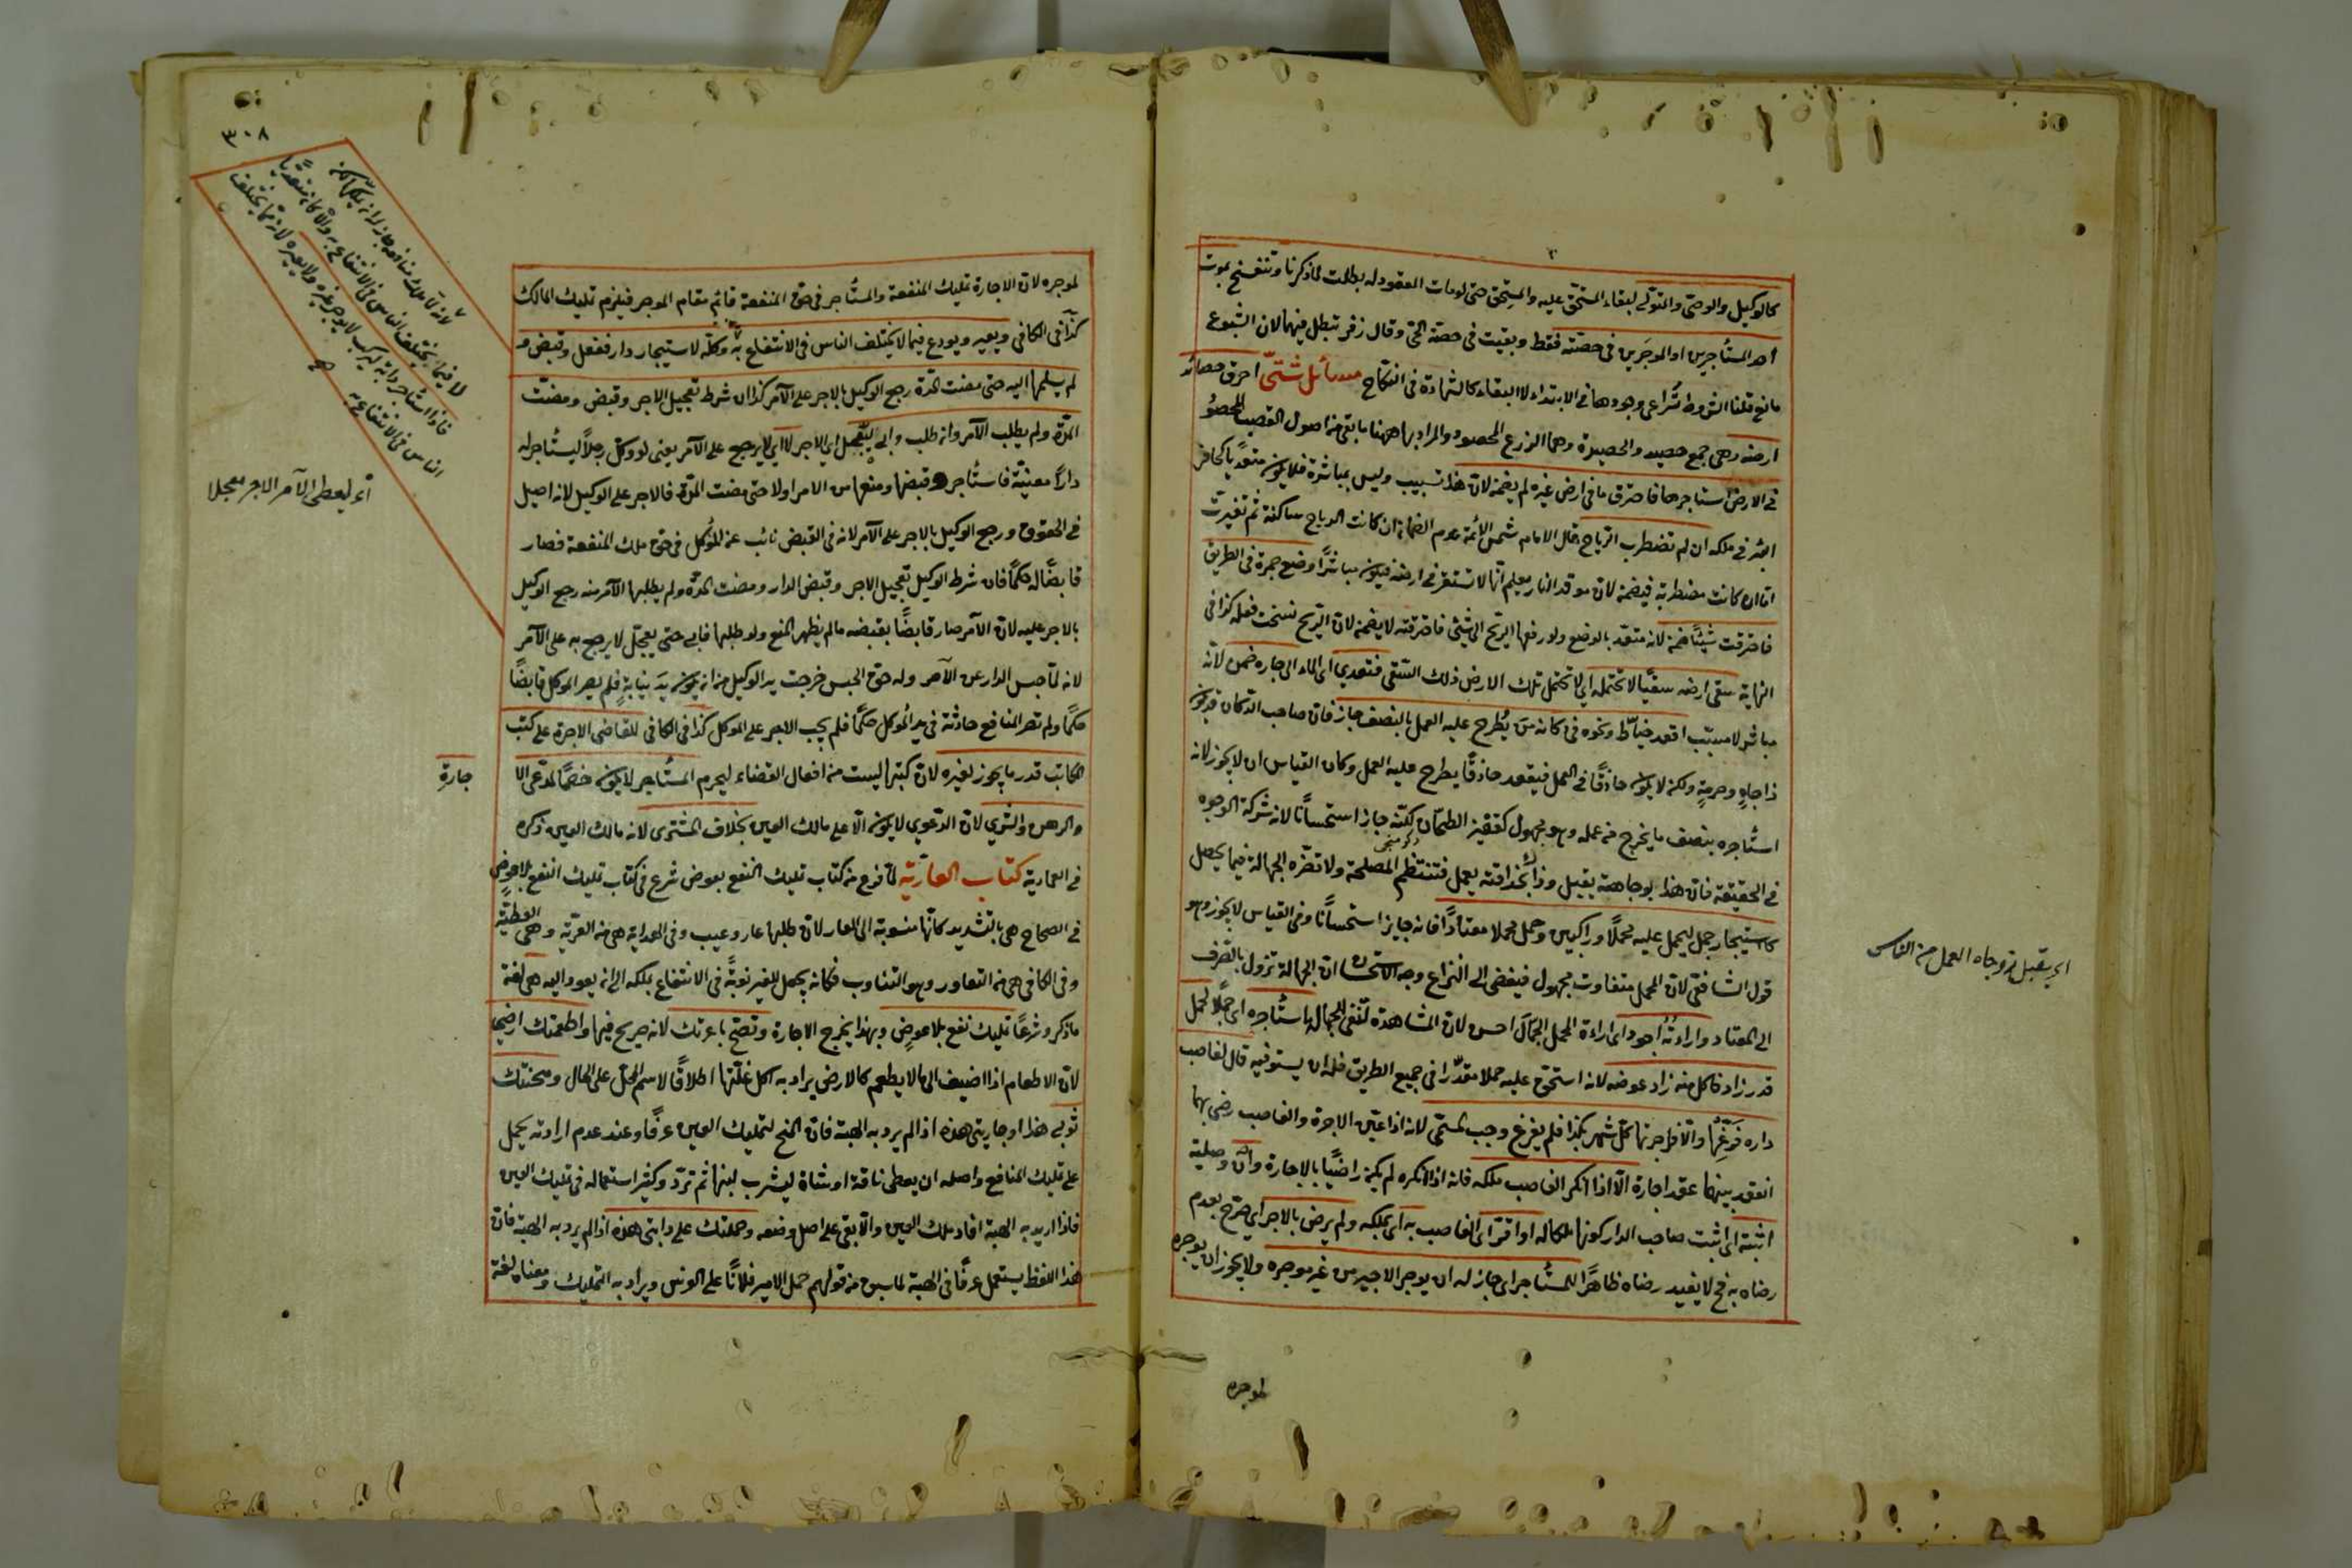 كالوكيل والوصي والمتولي لبقاء المستحق عليه والمستحق حتى لو مات المعقود له بطلت لما ذكرنا وتنفسخ بموت
احد المستأجرين او الموجرين في حصته فقط وبقيت في حصة الحي وقال زفر تبطل فيهما لان الشيوع
مانع قلنا الشروط يراعى وجودها في الابتداء لا البقاء كالشهادة في النكاح مسائل شتى احرق حصائد
ارضه وهي جمع حصيد والحصيدة وهما الزرع المحصود والمراد بها ههنا ما بقي من اصول القصب المحصود
في الارض استأجرها فاحترق ما في ارض غيره لم يضمنه لان هذا تسبيب وليس بمباشرة فلا يكون متعديا كحافر
البئر في ملكه ان لم تضطرب الرياح قال الامام شمس الائمة عدم الضمان ان كانت الرياح ساكنة ثم تغيرت
اما ان كانت مضطربة فيضمنه لان موقد النار يعلم انها لا تستقر في ارضه فيكون مباشرا وضع جمرة في الطريق
فاحرقت شيئا ضمنه لانه متعد بالوضع ولو رفعها الريح الى شئ فاحرقته لا يضمنه لان الريح نسخت فعله كذا في
النهاية سقى ارضه سقيا لا تحتمله اي لا تحتمل تلك الارض ذلك السقي فتعدى اي الماء الى جاره ضمن لانه
مباشر لا مسبب اقعد خياط ونحوه في دكانه من يطرح عليه العمل بالنصف جاز فان صاحب الدكان قد يكون
ذا جاه وحرمة ولكنه لا يكون حاذقا في العمل فيقعد حاذقا يطرح عليه العمل وكان القياس ان لا يجوز لانه
استأجره بنصف ما يخرج من عمله وهو مجهول كقفيز الطحان لكنه جاز استحسانا لانه شركة الوجوه
في الحقيقة فان هذا بوجاهته يقبل وذاك بحذاقته يعمل فتنتظم المصلحة ولا تضره الجهالة فيما يحصل
كاستيجار جمل ليحمل عليه محملا وراكبين وحمل محملا معتادا فانه جايز استحسانا وفي القياس لا يجوز وهو
قول الشافعي لان المحمل متفاوت مجهول فيفضي الى النزاع وجه الاستحسان ان الجهالة تزول بالصرف
الى المعتاد واراءته اجود اي اراءة المحمل الجمال احسن لان المشاهدة تنفي الجهالة استأجره اي جملا لحمل
قدر زاد فاكل منه زاد عوضه لانه استحق عليه حملا مقدرا في جميع الطريق فله ان يستوفيه قال لغاصب
داره فرغها والا فاجرتها كل شهر بكذا فلم يفرغ وجب المسمى لانه اذا عين الاجرة والغاصب رضي بها
انعقد بينهما عقد اجارة الا اذا انكر الغاصب ملكه فانه اذا انكره لم يكن راضيا بالاجارة وان وصلية
اثبته اي اثبت صاحب الدار كونها ملكا له او اقر اي الغاصب به اي بملكه ولم يرض بالاجر اي صرح بعدم
رضاه به فح لا يفيد رضاه ظاهرا للمستأجر اي جاز له ان يوجر الاجير من غير موجره ولا يجوز ان يوجره
لموجره
اي يقبل ذو جاه العمل من الناس
٣٠٨
لموجره لان الاجارة تمليك المنفعة والمستأجر في حق المنفعة قائم مقام الموجر فيلزم تمليك المالك
كذا في الكافي ويعير ويودع فيما لا يختلف الناس في الانتفاع به وكله لاستيجار دار ففعل وقبض و
لم يسلمها اليه حتى مضت المدة رجع الوكيل بالاجر على الآمر كذا ان شرط تعجيل الاجر وقبض ومضت
المدة ولم يطلب الآمر وان طلب وابى ليتعجل اي الاجر لا اي لا يرجع على الآمر يعني لو وكل رجلا ليستأجر له
دارا معينة فاستأجر وقبضها ومنعها من الامر اولا حتى مضت المدة فالاجر على الوكيل لانه اصيل
في الحقوق ورجع الوكيل بالاجر على الآمر لانه في القبض نائب عن الموكل في حق ملك المنفعة فصار
قابضا له حكما فان شرط الوكيل تعجيل الاجر وقبض الدار ومضت المدة ولم يطلبها الآمر منه رجع الوكيل
بالاجر عليه لان الآمر صار قابضا بقبضه ما لم يظهر المنع ولو طلبها فابى حتى يعجل لا يرجع به على الآمر
لانه لما حبس الدار عن الآمر وله حق الحبس خرجت يد الوكيل من ان يكون يد نيابة فلم يصر الموكل قابضا
حكما ولم تصر المنافع حادثة في يد الموكل حكما فلم يجب الاجر على الموكل كذا في الكافي للقاضي الاجرة على كتب
المكاتب قدر ما يجوز لغيره لان كتبها ليست من افعال القضاء ليحرم المستأجر لا يكون خصما لمدعي الا
جارة
والرهن والشري لان الدعوى لا يكون الا على مالك العين بخلاف المشتري لانه مالك العين ذكره
في العمادية كتاب العارية لما فرغ من كتاب تمليك النفع بعوض شرع في كتاب تمليك النفع بلا عوض
في الصحاح هي بالتشديد كانها منسوبة الى العار لان طلبها عار وعيب وفي الهداية هي من العرية وهي العطية
وفي الكافي هي من التعاور وهو التناوب فكانه يجعل للغير نوبة في الانتفاع بملكه الى ان يعود اليه هي لغة
ما ذكر وشرعا تمليك نفع بلا عوض وبهذا يخرج الاجارة وتصح باعرتك لانه صريح فيها واطعمتك ارضي
لان الاطعام اذا اضيف الى ما لا يطعم كالارض يراد به اكل غلتها اطلاقا لاسم المحل على الحال ومنحتك
ثوبي هذا او جاريتي هذه اذا لم يرد به الهبة فان المنح لتمليك العين عرفا وعند عدم ارادته يحمل
على تمليك المنافع واصله ان يعطى ناقة او شاة ليشرب لبنها ثم ترد وكثر استعماله في تمليك العين
فاذا اريد به الهبة افاد ملك العين والا بقي على اصل وضعه وحملتك على دابتي هذه اذا لم يرد به الهبة فان
هذا اللفظ يستعمل عرفا في الهبة لما سبق من قولهم حمل الامير فلانا على الفرس ويراد به التمليك ومعناه لغة
لا فيما يختلف الناس في الانتفاع به والا كان متعديا
فاذا استأجر دابة ليركب لا يوجر غيره ولا يعيره لانه مما يختلف
الناس في الانتفاع به
اي ليعطي الآمر الاجر معجلا